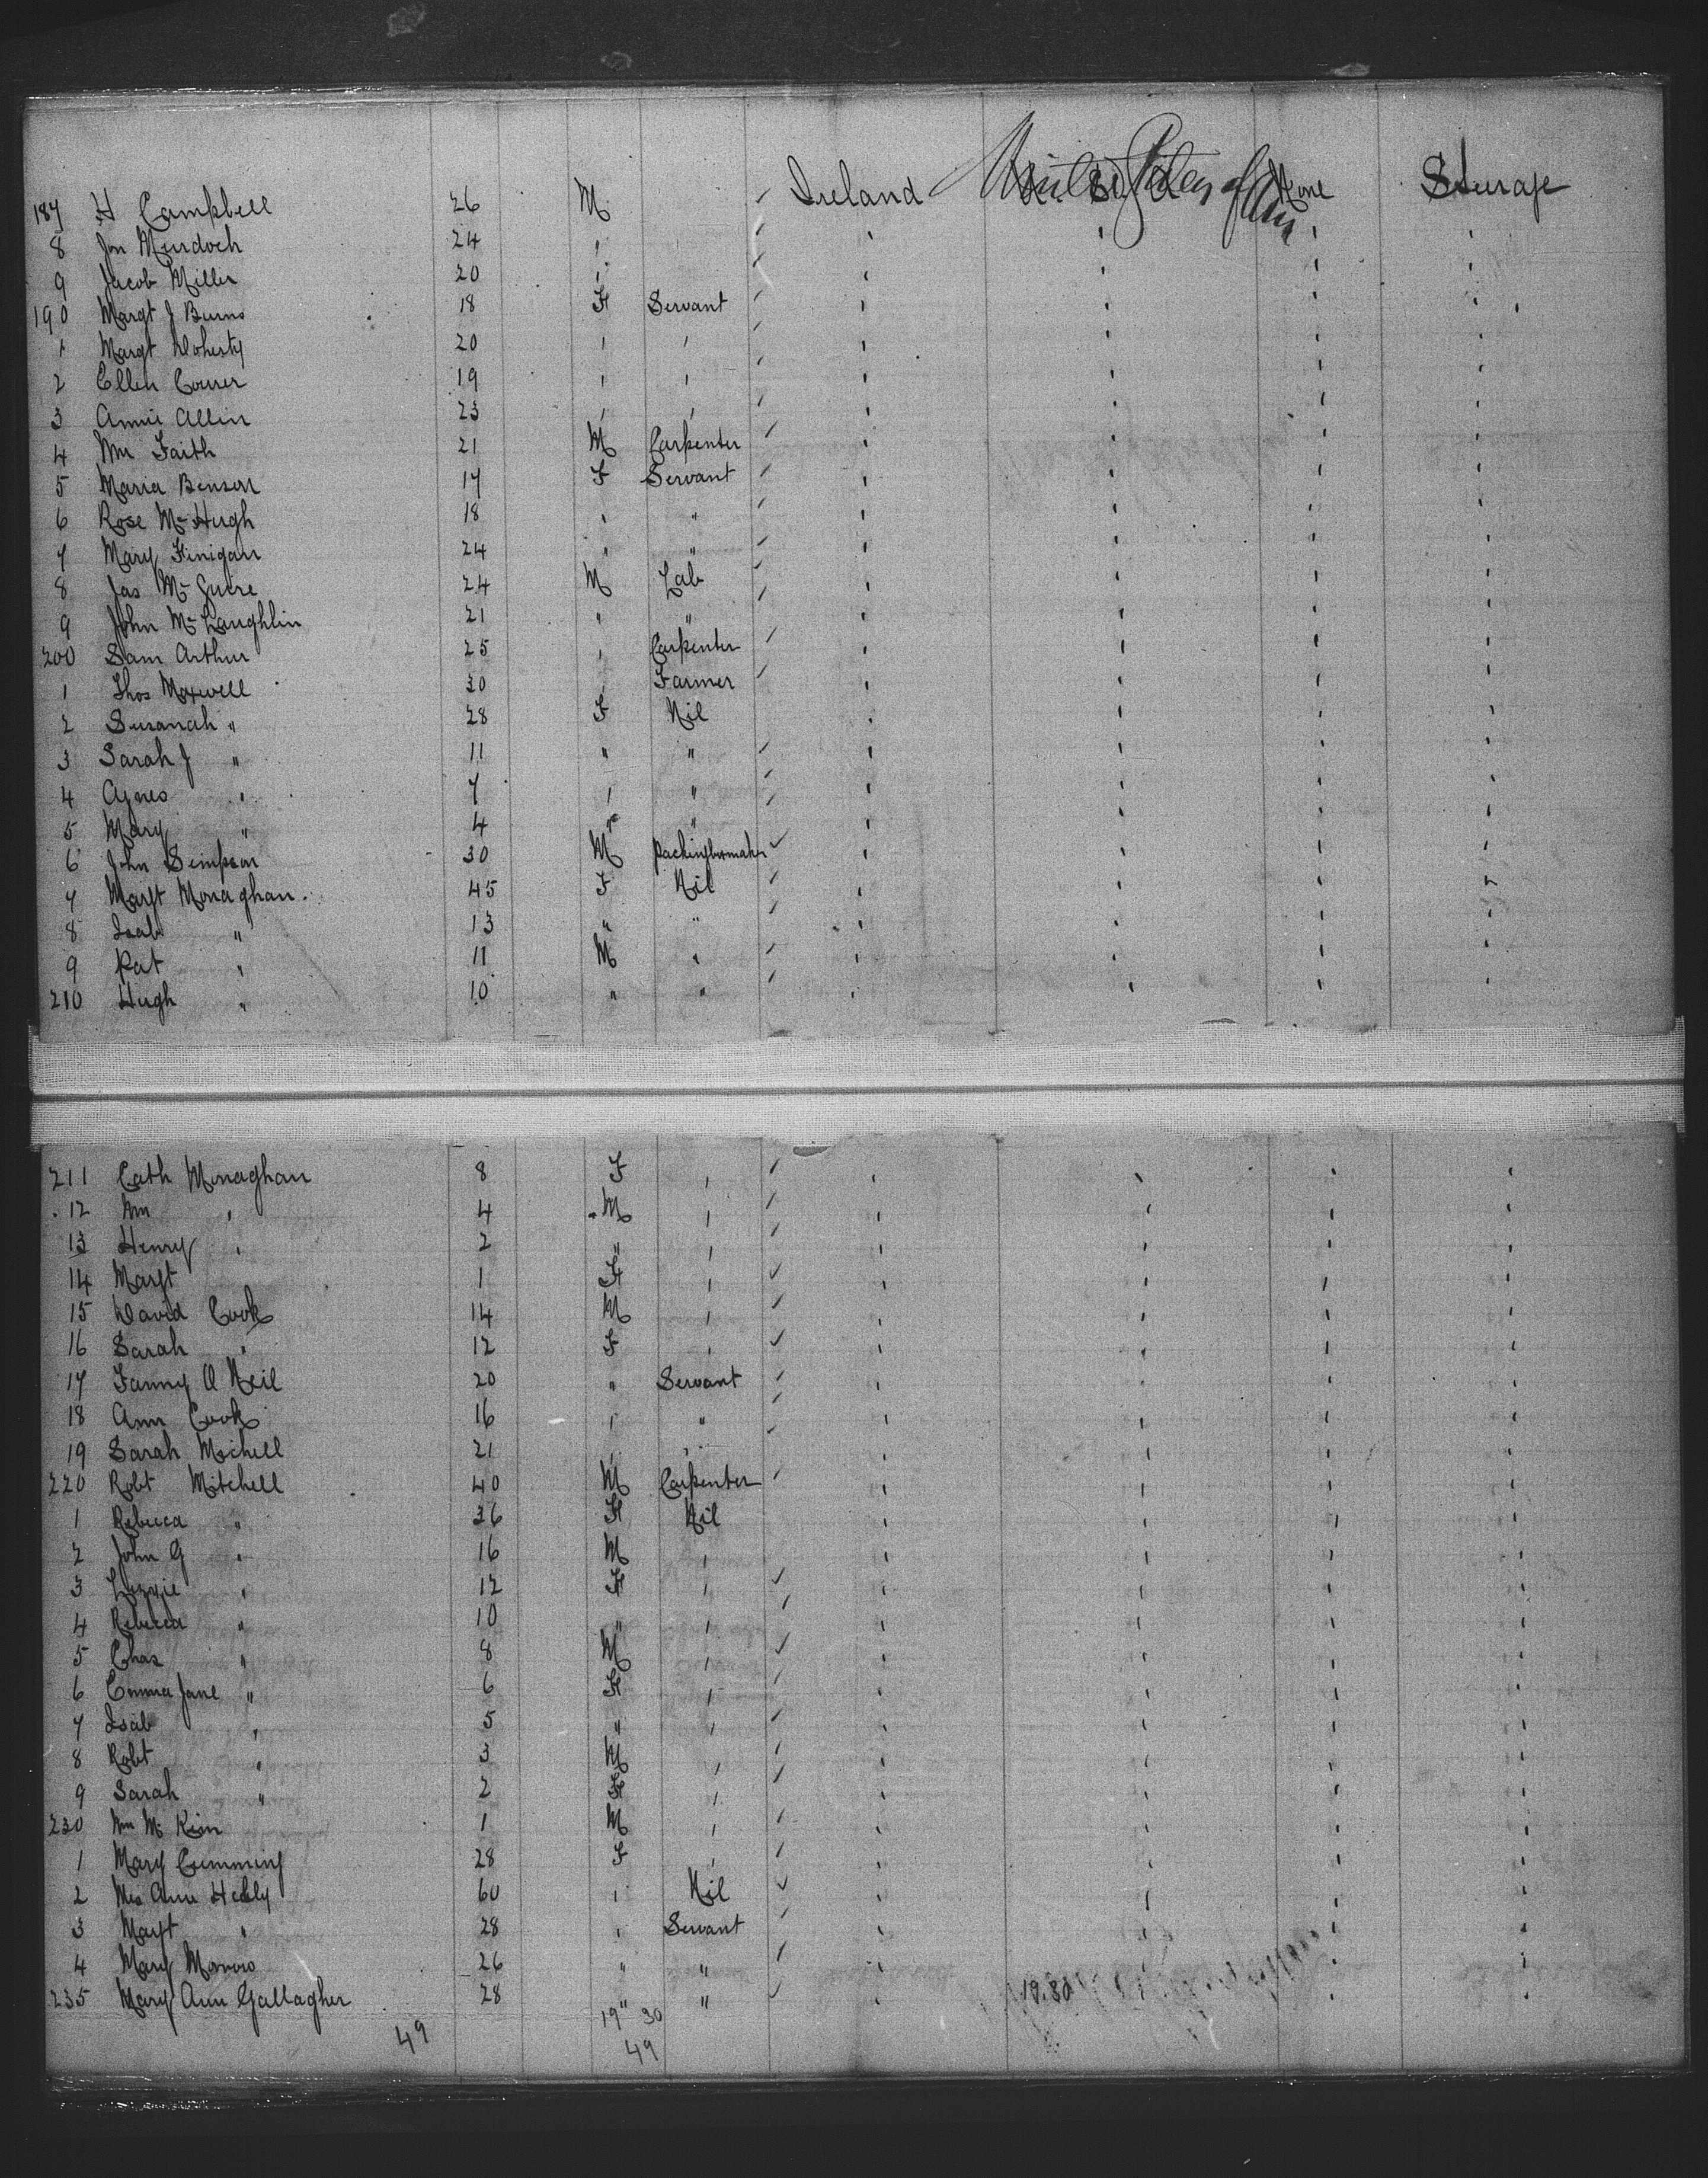 187 H Campbell 26 M Ireland United States of Am None Steerage
8 Jon Murdoch 24 " " " " "
9 Jacob Miller 20 " " " " "
190 Margt J Burns 18 F Servant " " " "
1 Margt Doherty 20 " " " " " "
2 Ellen Courer 19 " " " " " "
3 Annie Allin 23 " " " " " "
4 Wm Faith 21 M Carpenter " " " "
5 Maria Benson 17 F Servant " " " "
6 Rose Mc Hugh 18 " " " " " "
7 Mary Finigan 24 " " " " " "
8 Jas Mc Guire 24 M Lab " " " "
9 John Mc Laughlin 21 " " " " " "
200 Sam Arthur 25 " Carpenter " " " "
1 Thos Maxwell 30 " Farmer " " " "
2 Susanah " 28 F Nil " " " "
3 Sarah J " 11 " " " " " "
4 Agnes " 7 " " " " " "
5 Mary " 4 " " " " " "
6 John Simpson 30 M Packingboxmaker " " " "
7 Margt Monaghan 45 F Nil " " " "
8 Isab " 13 " " " " " "
9 Pat " 11 M " " " " "
210 Hugh " 10 " " " " " "
211 Cath Monaghan 8 F " " " " "
12 Wm " 4 M " " " " "
13 Henry " 2 " " " " " "
14 Margt 1 F " " " " "
15 David Cook 14 M " " " " "
16 Sarah " 12 F " " " " "
17 Fanny O Neil 20 " Servant " " " "
18 Ann Cook 16 " " " " " "
19 Sarah Michell 21 " " " " " "
220 Robt Mitchell 40 M Carpenter " " " "
1 Rebecca " 36 F Nil " " " "
2 John G " 16 M " " " " "
3 Lizzie " 12 F " " " " "
4 Rebecca " 10 " " " " " "
5 Chas " 8 M " " " " "
6 Emma Jane " 6 F " " " " "
7 Isab " 5 " " " " " "
8 Robt " 3 M " " " " "
9 Sarah " 2 F " " " " "
230 Wm Mc Kim 1 M " " " " "
1 Mary Cumming 28 F " " " " "
2 Mrs Ann Heally 60 " Nil " " " "
3 Margt " 28 " Servant " " " "
4 Mary Morrow 26 " " " " " "
235 Mary Ann Gallagher 28 " " " " "
19 " 30
49 49